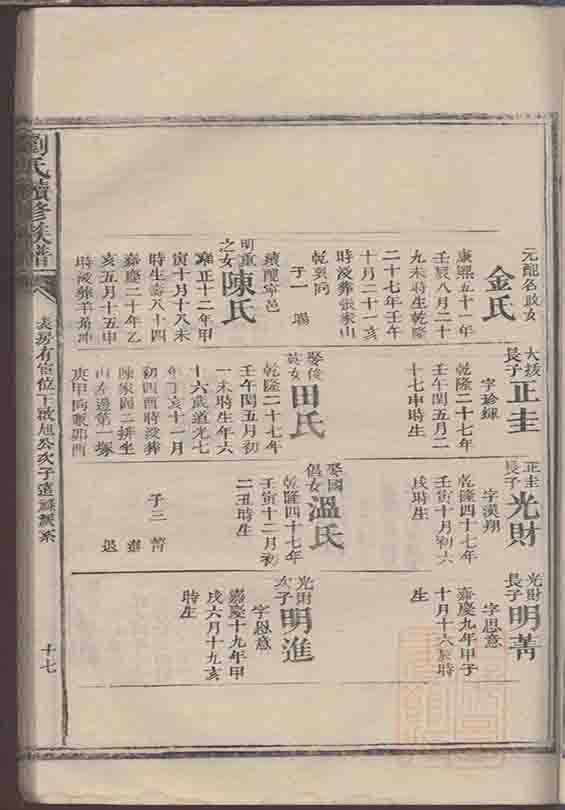 劉氏續修族譜
十七
元配名政女
金氏
康熙五十一年
壬辰八月二十
九未時生乾隆
二十七年壬午
十月二十一亥
時歿葬張家山
乾巽向
子一 瑞
續配寧邑
明重之女
陳氏
雍正十二年甲
寅十月十八未
時生壽八十四
嘉慶二十年乙
亥五月十五申
時歿葬羊角冲
大
長子
正圭
字珍
乾隆二十七年
壬午閏五月二
十七申時生
娶俊
英女
田氏
乾隆二十七年
壬午閏五月初
一未時生年六
十六歲道光七
年丁亥十一月
初四酉時歿葬
陳家園二排坐
山左邊第一塚
庚甲向
正圭
長子
光財
字漢翔
乾隆四十七年
壬寅十月初六
戌時生
娶國
倡女
溫氏
乾隆四十七年
壬寅十二月初
二丑時生
子三 菁
進
退
光財
長子
明菁
字思意
嘉慶九年甲子
十月十六辰時
生
光財
次子
明進
字思意
嘉慶十九年甲
戌六月十九亥
時生